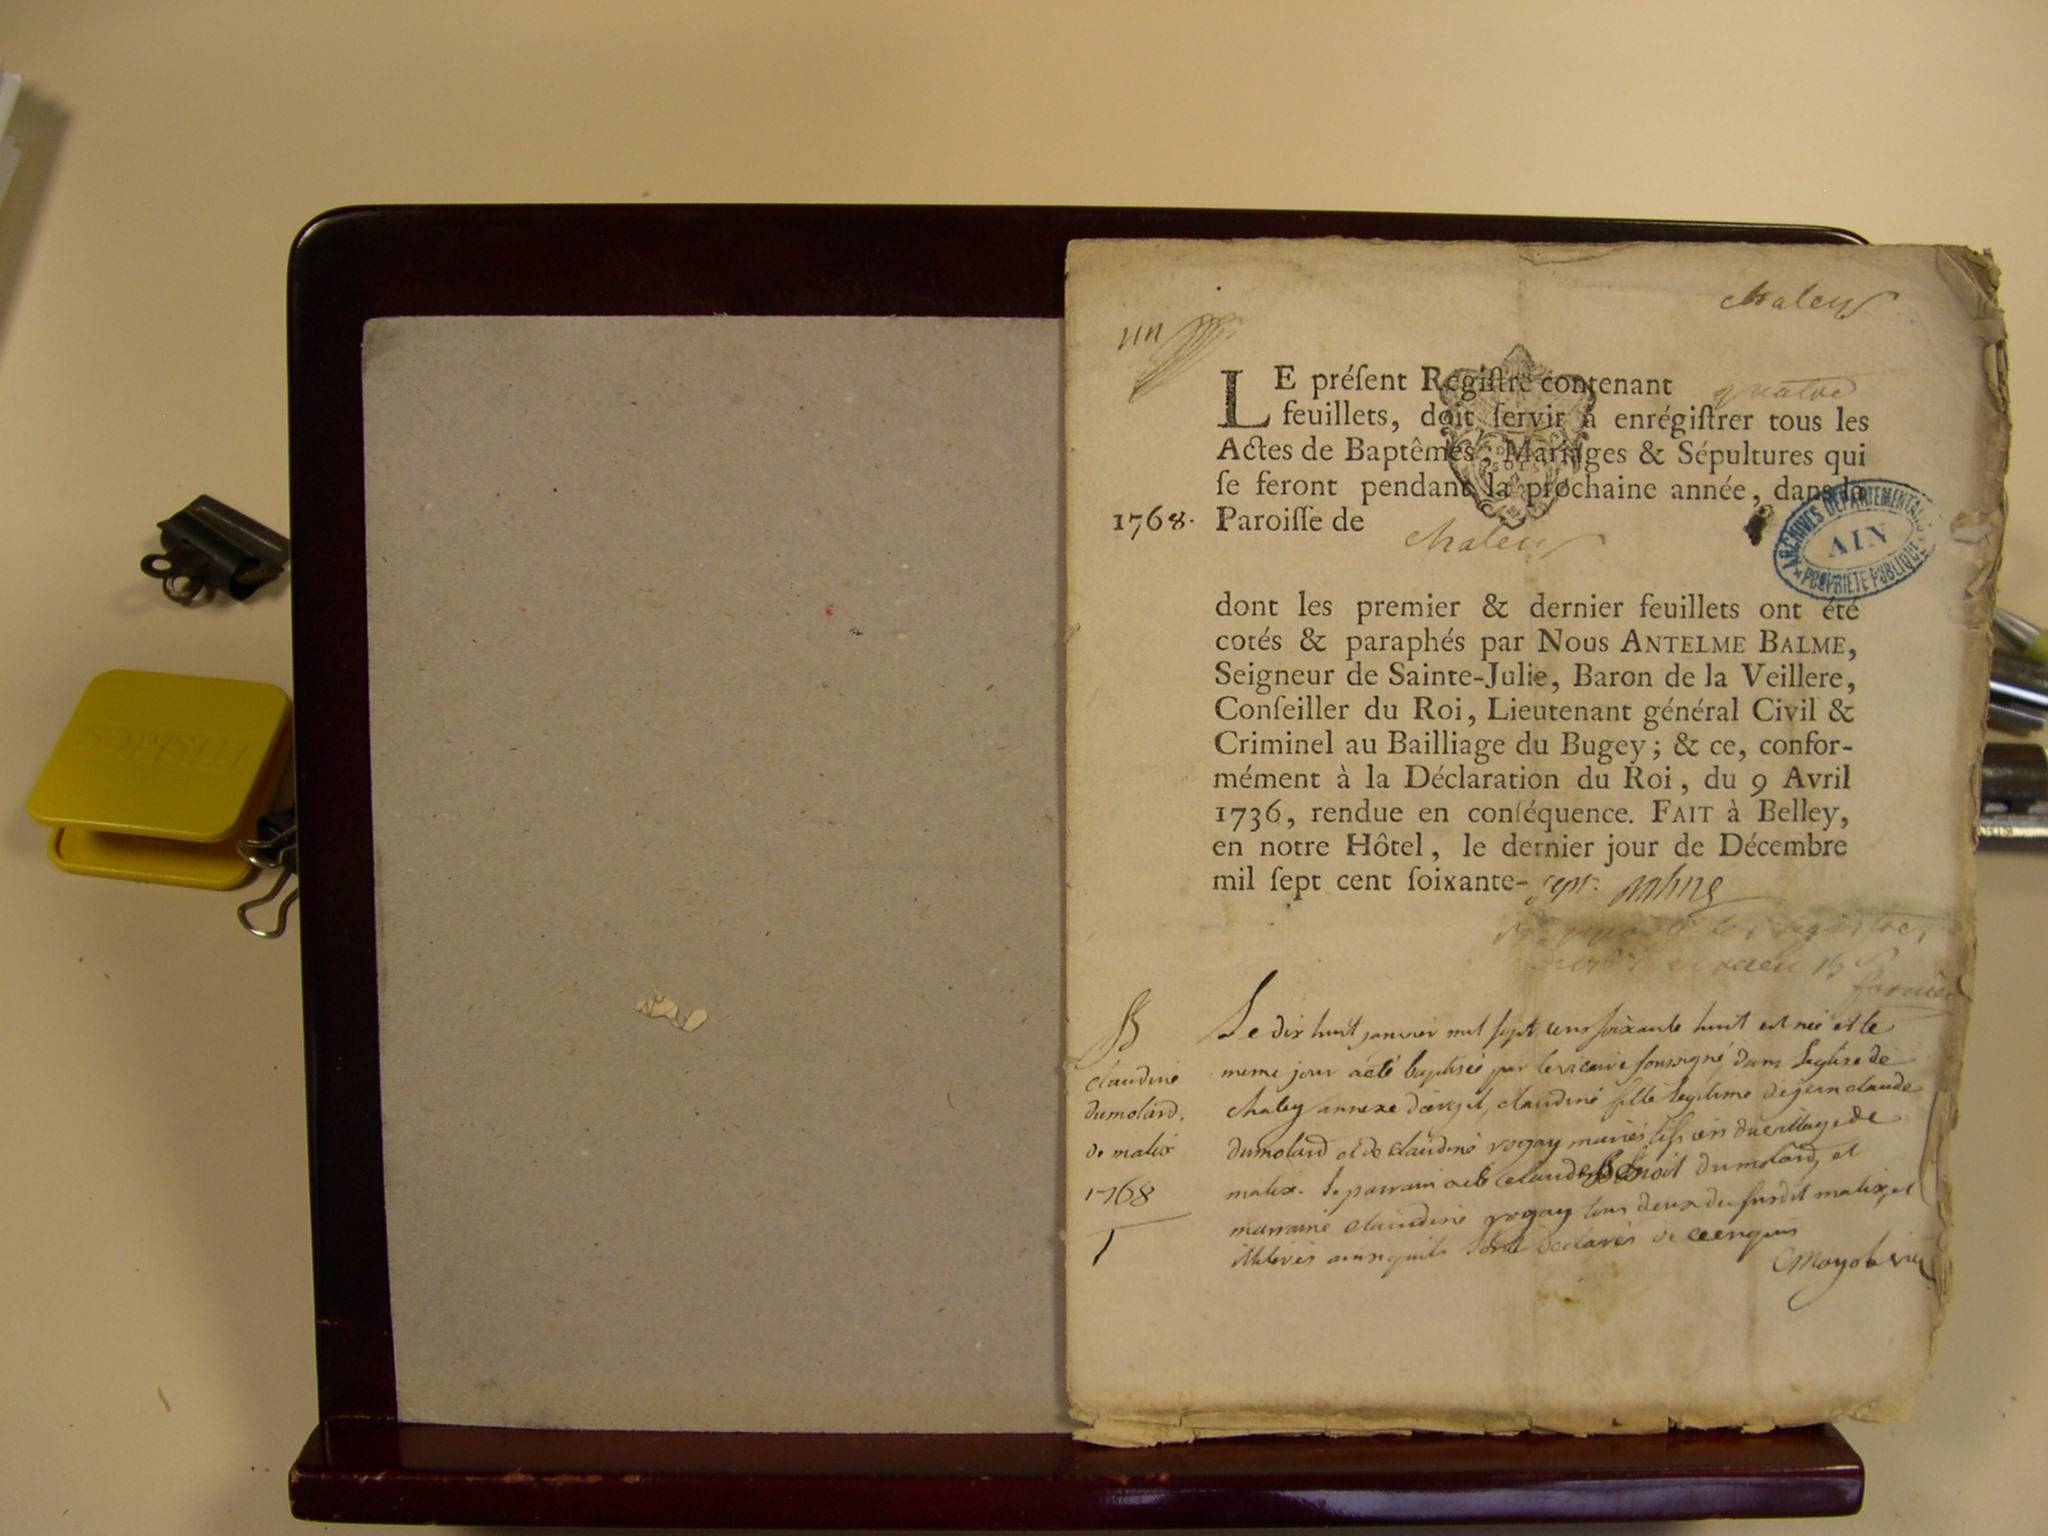 chaley
un
LE préſent Regiſtre contenant quatre
feuillets, doit ſervir à enrégiſtrer tous les
Actes de Baptêmes, Mariages & Sépultures qui
ſe feront pendant la prochaine année, dans la
1768. Paroiſſe de chaley
ARCHIVES DEPARTEMENTALES
AIN
PROPRIETE PUBLIQUE
dont les premier & dernier feuillets ont été
cotés & paraphés par Nous ANTELME BALME,
Seigneur de Sainte-Julie, Baron de la Veillere,
Conſeiller du Roi, Lieutenant général Civil &
Criminel au Bailliage du Bugey; & ce, confor-
mément à la Déclaration du Roi, du 9 Avril
1736, rendue en conſéquence. FAIT à Belley,
en notre Hôtel, le dernier jour de Décembre
mil ſept cent ſoixante- sept. Balme
B
claudine
dumolard.
de malix
1768
Le dix huit janvier mil sept cens soixante huit est née et le
meme jour a eté baptisée par le vicaire soussigné dans l'eglise de
chaley annexe d'oergit, claudine fille legitime de jean claude
dumolard et de claudine rogay mariés du village de
malix. le parrain a eté claude Benoit dumolard, et
marraine claudine rogay tous deux du susdit malix, et
illiterés ainsi qu'ils sont declarés de ce enquis
1